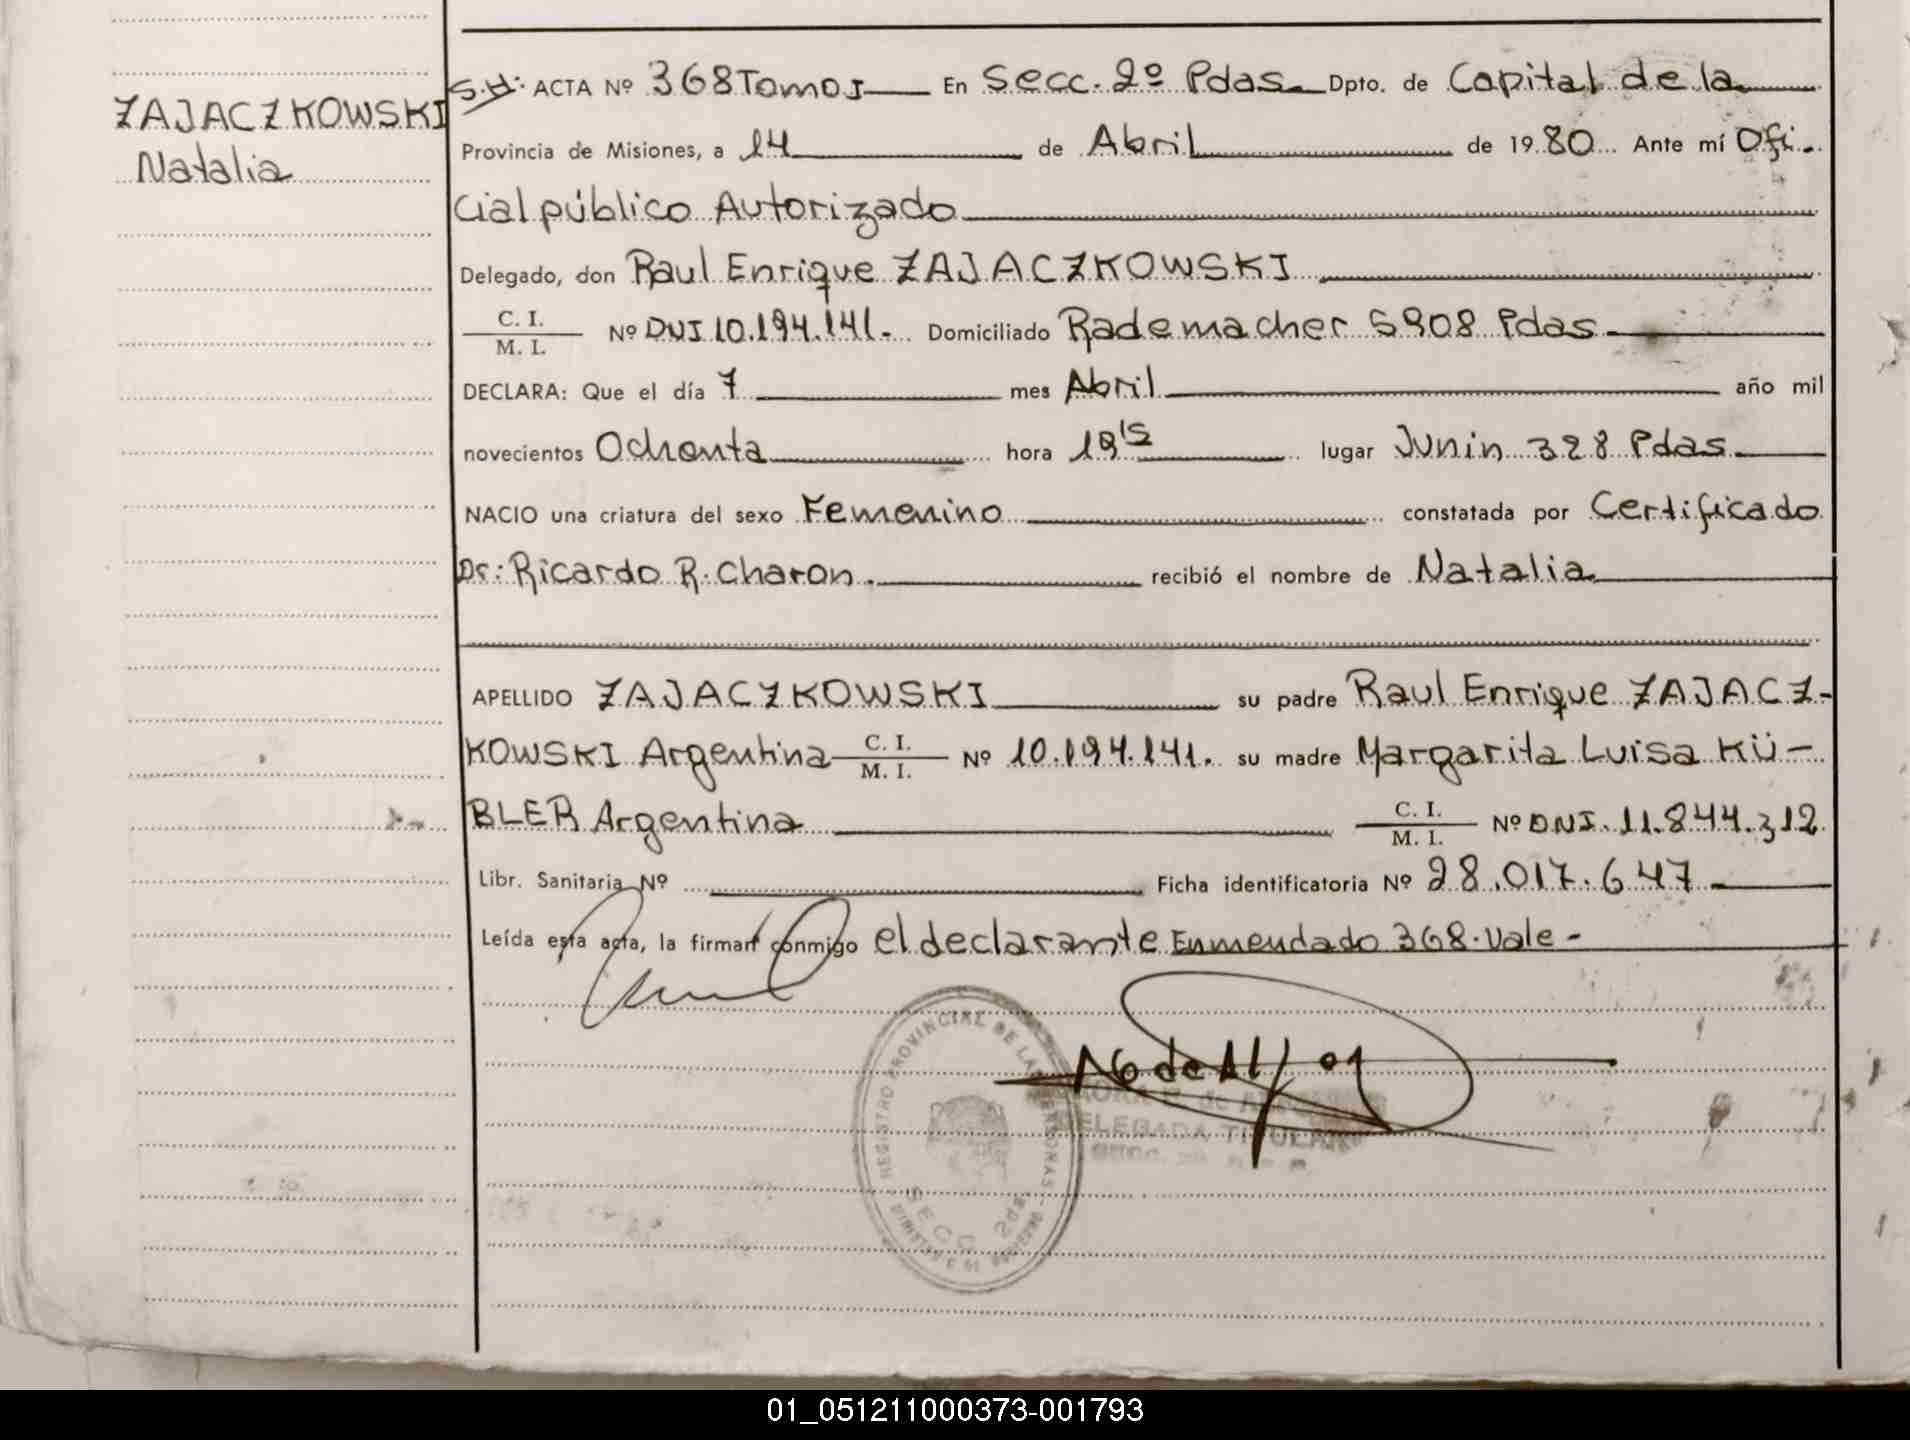 ZAJACZKOWSKI
Natalia
S.H: ACTA Nº 368 Tomo I En Secc. 2º Pdas. Dpto. de Capital de la
Provincia de Misiones, a 14 de Abril de 19 80 Ante mí Ofi-
cial público Autorizado
Delegado, don Raul Enrique ZAJACZKOWSKI
C. I.
M. I.
Nº DNI 10.194.141. Domiciliado Rademacher 5908 Pdas
DECLARA: Que el día 7 mes Abril año mil
novecientos Ochenta hora 19'15 lugar Junin 328 Pdas
NACIO una criatura del sexo Femenino constatada por Certificado
Dr: Ricardo R. Charon. recibió el nombre de Natalia
APELLIDO ZAJACZKOWSKI su padre Raul Enrique ZAJACZ-
KOWSKI Argentina C. I. M. I. Nº 10.194.141. su madre Margarita Luisa KÜ-
BLER Argentina C. I. M. I. Nº DNI. 11.844.312
Libr. Sanitaria Nº Ficha identificatoria Nº 28.017.647
Leída esta acta, la firman conmigo el declarante Enmendado 368. Vale-
REGISTRO PROVINCIAL DE LAS PERSONAS
SECC. 2da.
DELEGADA TITULAR
01_051211000373-001793